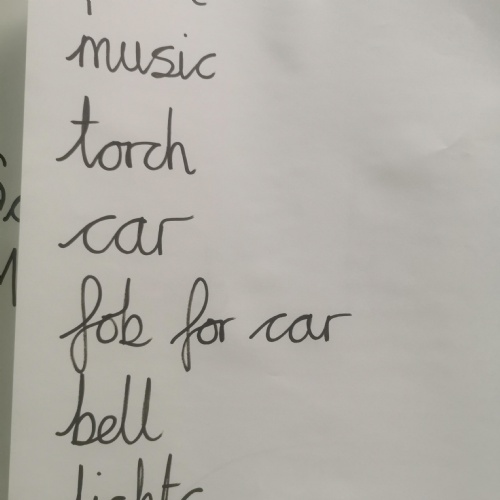 music
torch
car
fob for car
bell
lights